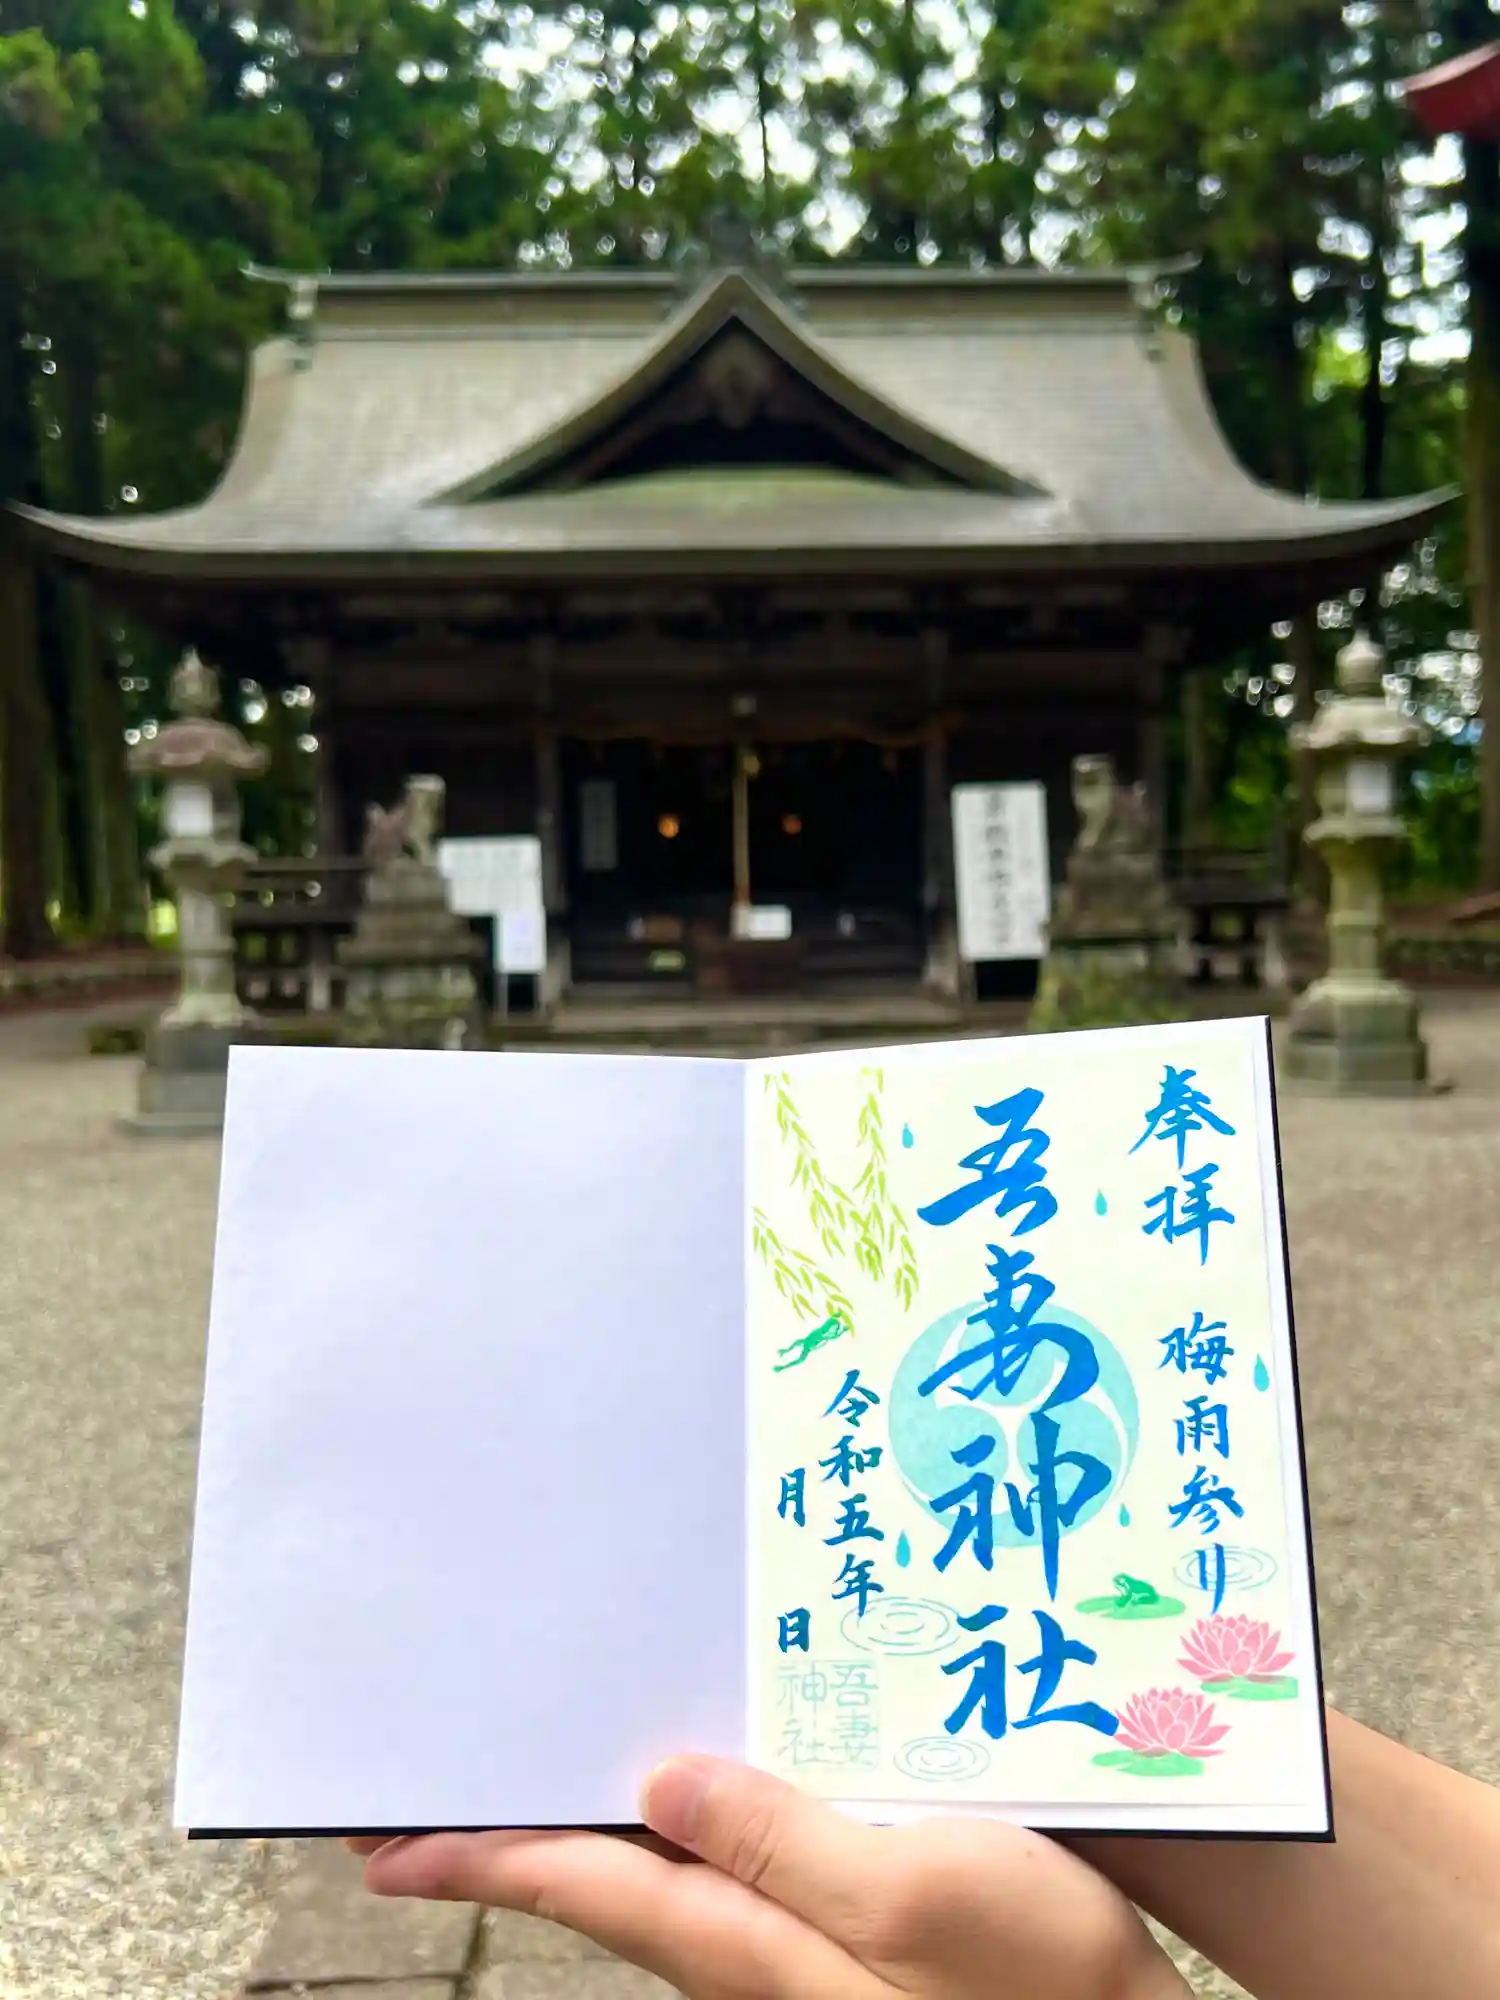 奉拝 梅雨参り
吾妻神社
令和五年
月 日
吾妻
神社